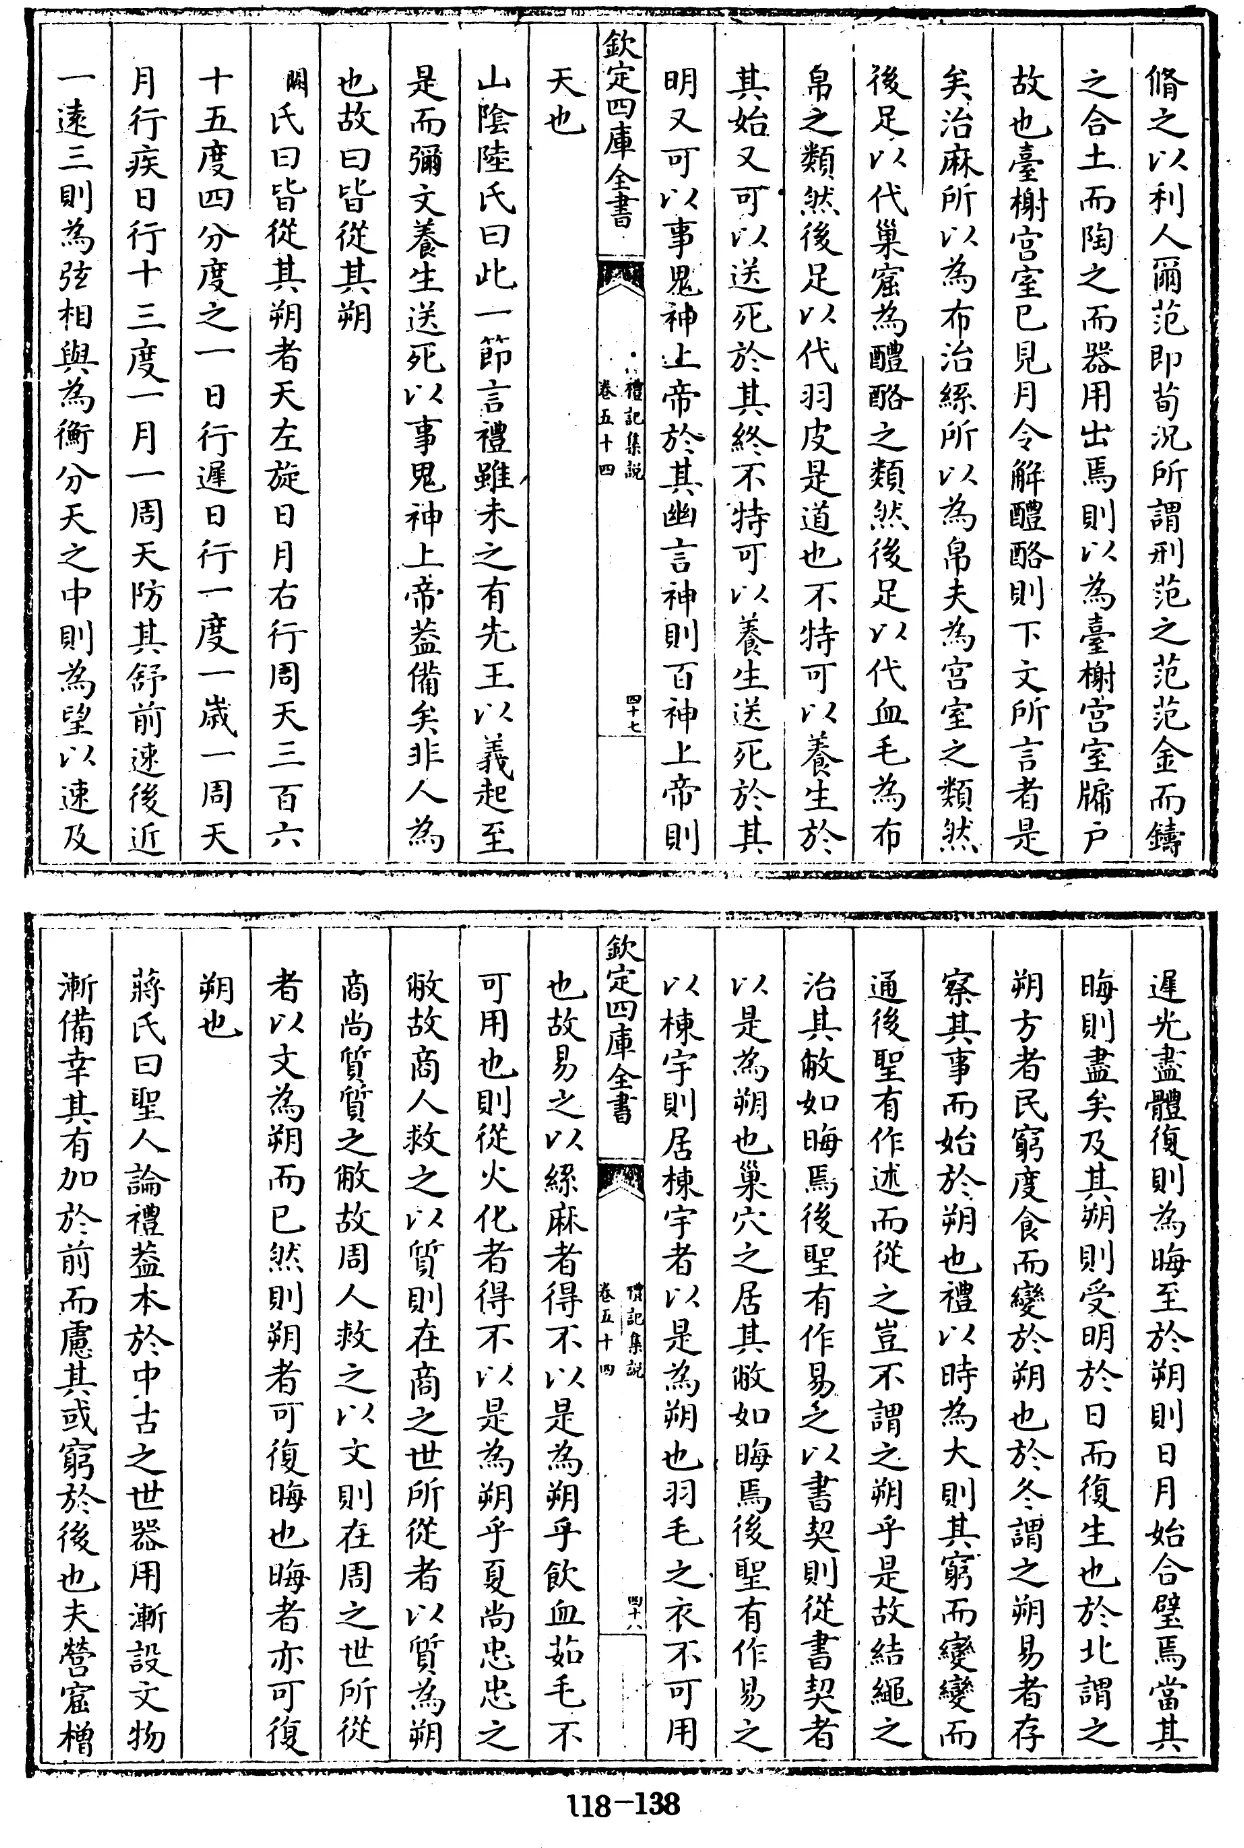 脩之以利人爾范即荀況所謂刑范之范范金而鑄
之合土而陶之而器用出焉則以為臺榭宫室牖戶
故也臺榭宫室已見月令解醴酪則下文所言者是
矣治麻所以為布治絲所以為帛夫為宫室之類然
後足以代巢窟為醴酪之類然後足以代血毛為布
帛之類然後足以代羽皮是道也不特可以養生於
其始又可以送死於其終不特可以養生送死於其
明又可以事鬼神上帝於其幽言神則百神上帝則
天也
欽定四庫全書
禮記集説
卷五十四
四十七
山陰陸氏曰此一節言禮雖未之有先王以義起至
是而彌文養生送死以事鬼神上帝葢備矣非人為
也故曰皆從其朔
闕氏曰皆從其朔者天左旋日月右行周天三百六
十五度四分度之一日行遲日行一度一歲一周天
月行疾日行十三度一月一周天防其舒前速後近
一遠三則為弦相與為衡分天之中則為望以速及
遲光盡體復則為晦至於朔則日月始合璧焉當其
晦則盡矣及其朔則受明於日而復生也於北謂之
朔方者民窮度食而變於朔也於冬謂之朔易者存
察其事而始於朔也禮以時為大則其窮而變變而
通後聖有作述而從之豈不謂之朔乎是故結繩之
治其敝如晦焉後聖有作易之以書契則從書契者
以是為朔也巢穴之居其敝如晦焉後聖有作易之
以棟宇則居棟宇者以是為朔也羽毛之衣不可用
欽定四庫全書
禮記集説
卷五十四
四十八
也故易之以絲麻者得不以是為朔乎飲血茹毛不
可用也則從火化者得不以是為朔乎夏尚忠忠之
敝故商人救之以質則在商之世所從者以質為朔
商尚質質之敝故周人救之以文則在周之世所從
者以文為朔而已然則朔者可復晦也晦者亦可復
朔也
蔣氏曰聖人論禮葢本於中古之世器用漸設文物
漸備幸其有加於前而慮其或窮於後也夫營窟橧
118-138